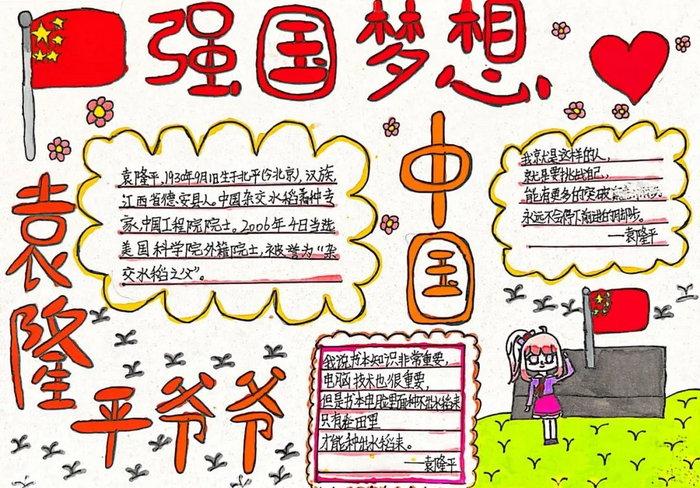 强国梦想
中国
袁隆平爷爷
袁隆平，1930年9月1日生于北平(今北京)，汉族，
江西省德安县人。中国杂交水稻育种专
家，中国工程院院士。2006年4日当选
美国科学院外籍院士，被誉为“杂
交水稻之父”。
我就是这样的人，
就是要挑战自己，
能有更多的突破
永远不会停下前进的脚步。
——袁隆平
我说书本知识非常重要，
电脑技术也很重要，
但是书本中电脑里面种不出水稻来
只有在田里
才能种出水稻来。
——袁隆平